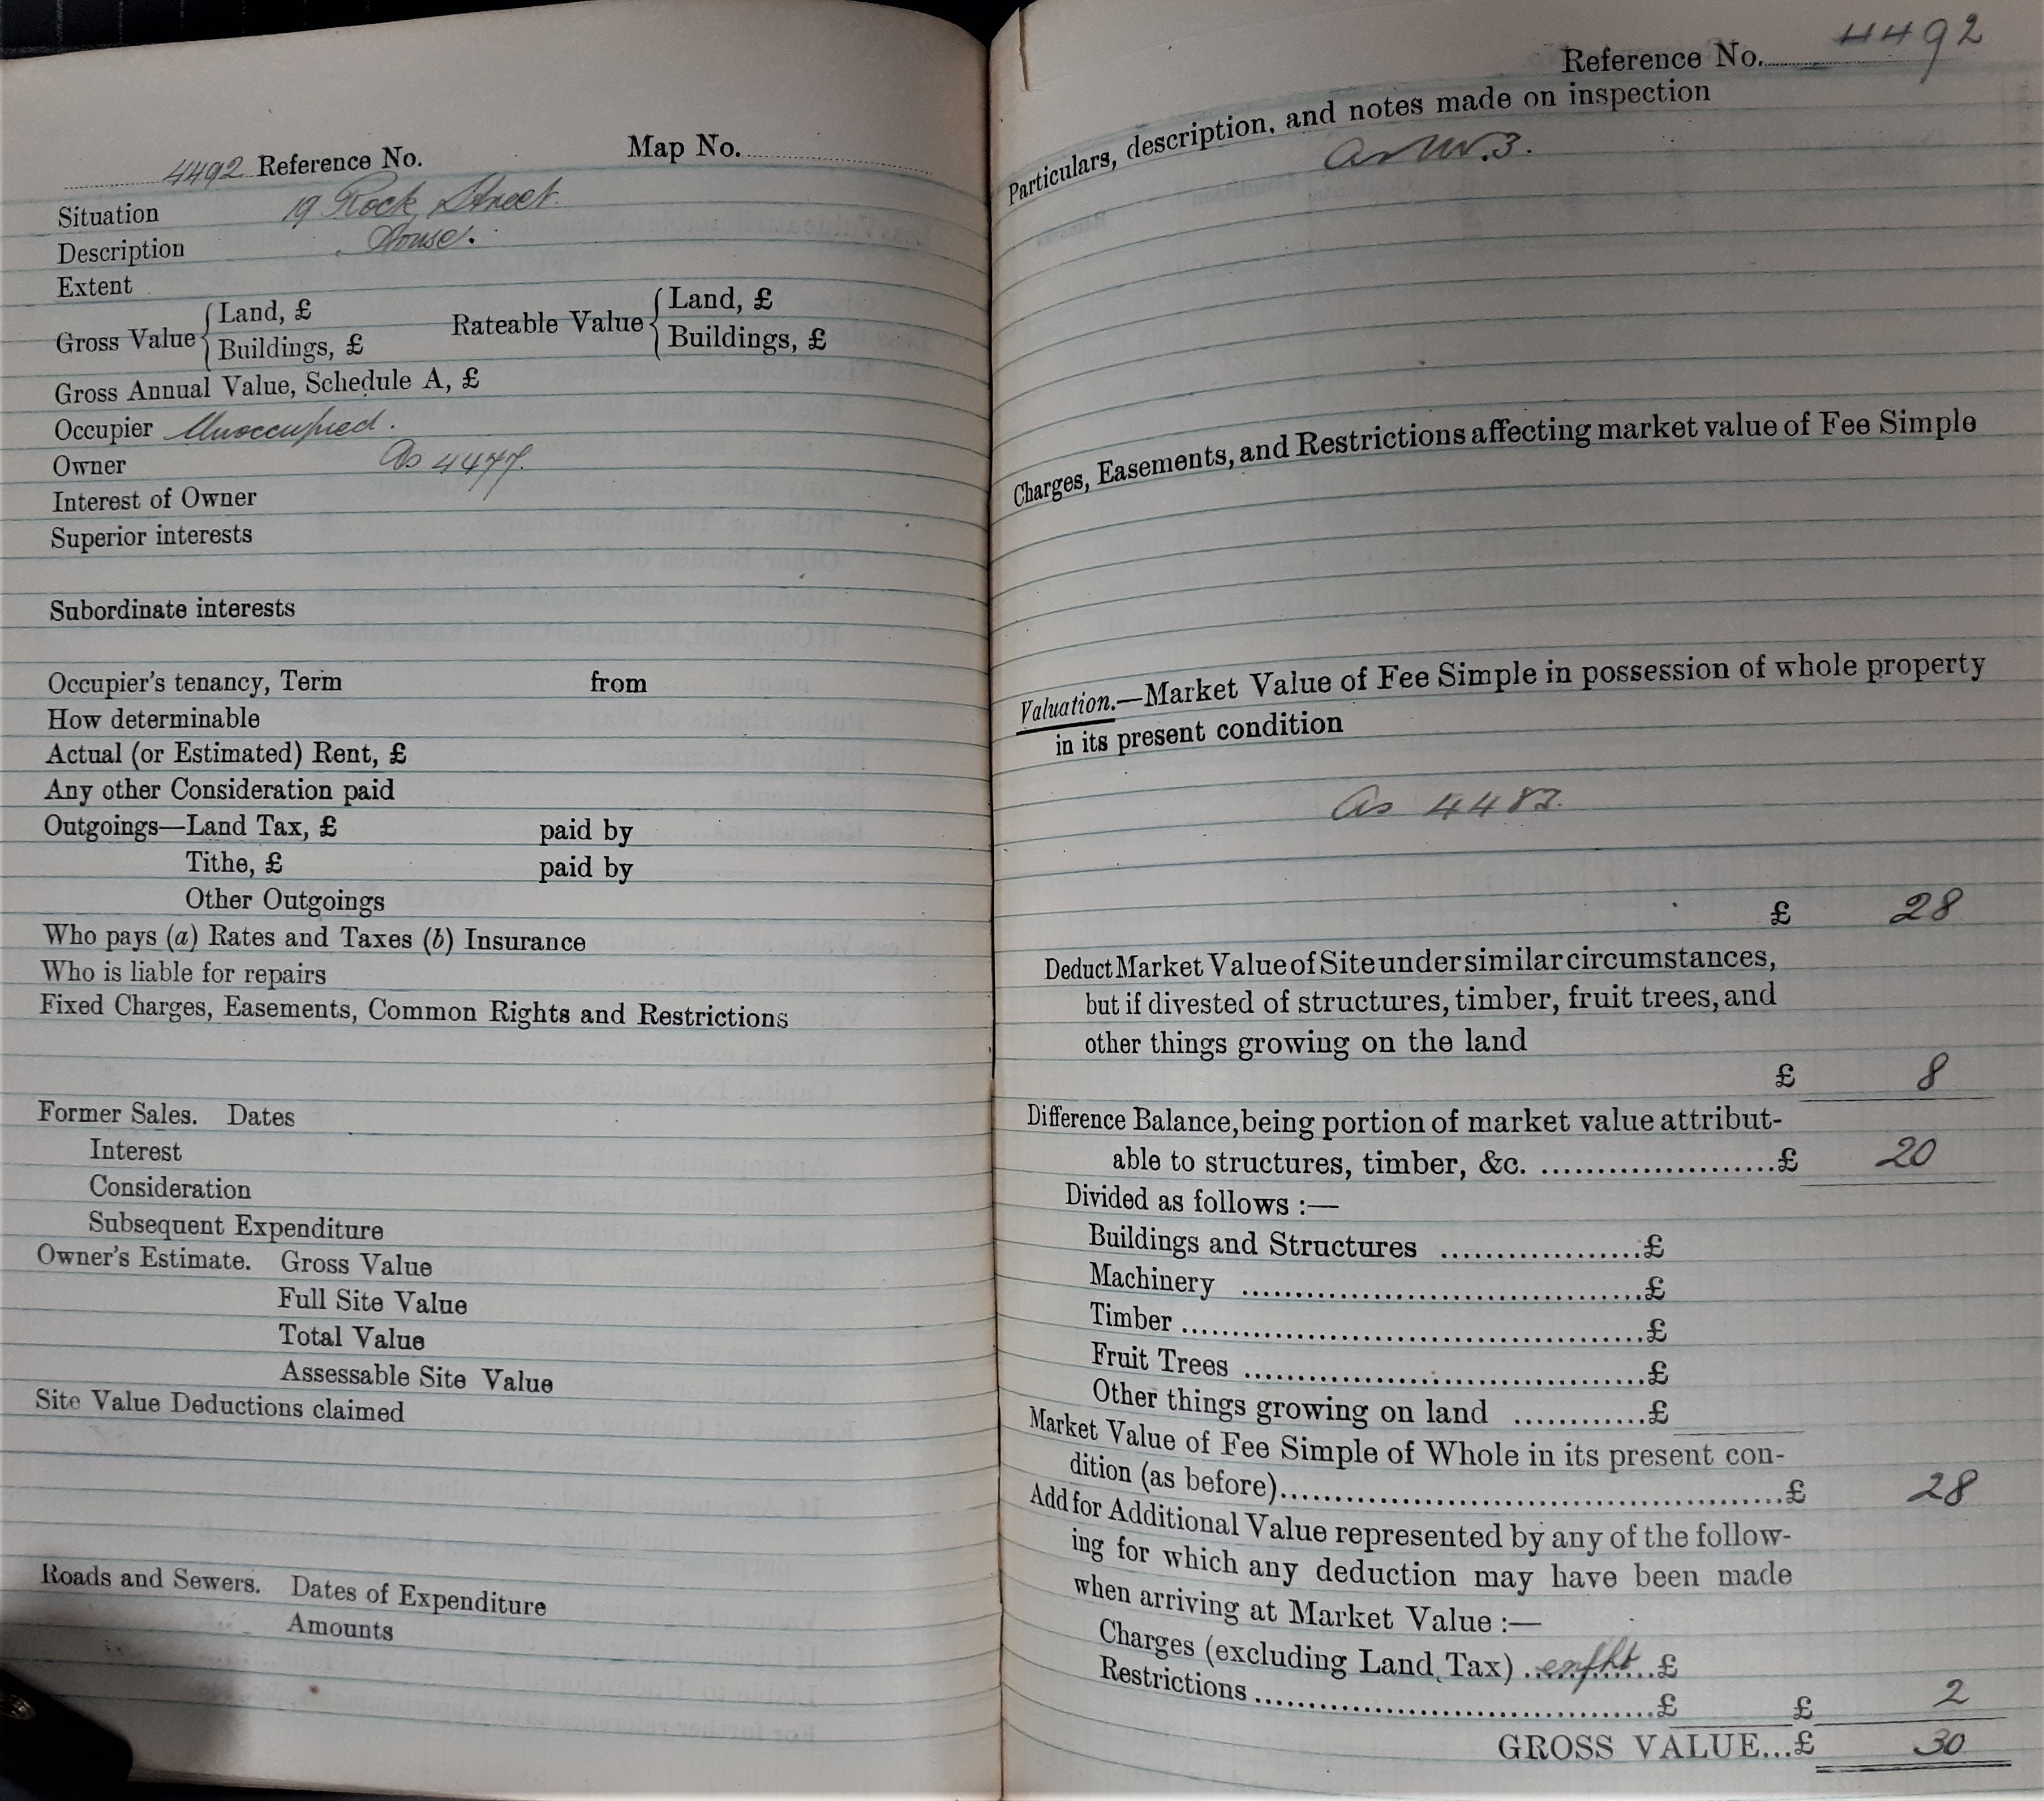 4492 Reference No. Map No.
Situation 19 Rock Street
Description House.
Extent
Gross Value { Land, £ Rateable Value { Land, £
Buildings, £ Buildings, £
Gross Annual Value, Schedule A, £
Occupier Unoccupied.
Owner As 4477.
Interest of Owner
Superior interests
Subordinate interests
Occupier's tenancy, Term from
How determinable
Actual (or Estimated) Rent, £
Any other Consideration paid
Outgoings—Land Tax, £ paid by
Tithe, £ paid by
Other Outgoings
Who pays (a) Rates and Taxes (b) Insurance
Who is liable for repairs
Fixed Charges, Easements, Common Rights and Restrictions
Former Sales. Dates
Interest
Consideration
Subsequent Expenditure
Owner's Estimate. Gross Value
Full Site Value
Total Value
Assessable Site Value
Site Value Deductions claimed
Roads and Sewers. Dates of Expenditure
Amounts
Reference No. 4492
Particulars, description, and notes made on inspection
As 3.
Charges, Easements, and Restrictions affecting market value of Fee Simple
Valuation.—Market Value of Fee Simple in possession of whole property
in its present condition
As 4487.
£ 28
Deduct Market Value of Site under similar circumstances,
but if divested of structures, timber, fruit trees, and
other things growing on the land
£ 8
Difference Balance, being portion of market value attribut-
able to structures, timber, &c. ......................£ 20
Divided as follows :—
Buildings and Structures ..................£
Machinery ....................................£
Timber ..........................................£
Fruit Trees ....................................£
Other things growing on land ............£
Market Value of Fee Simple of Whole in its present con-
dition (as before)..............................................£ 28
Add for Additional Value represented by any of the follow-
ing for which any deduction may have been made
when arriving at Market Value :—
Charges (excluding Land Tax) ...enfht...£
Restrictions ....................................£ £ 2
GROSS VALUE...£ 30